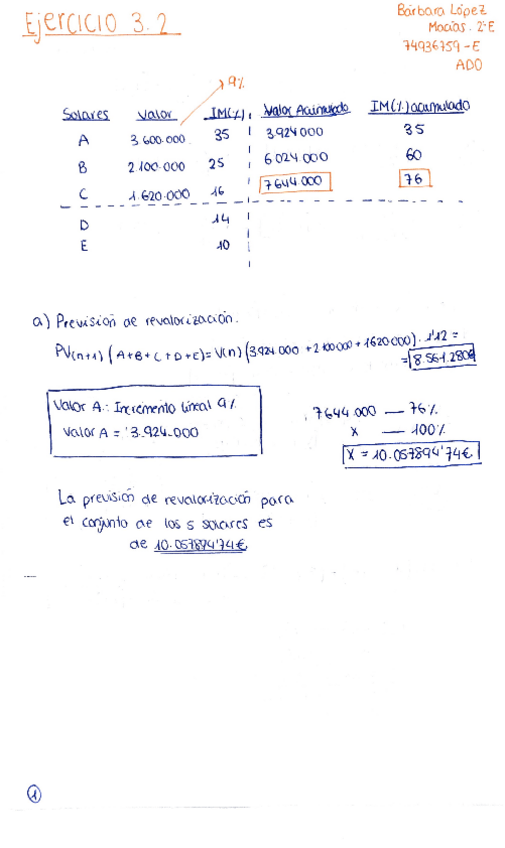 Ejercicio 3.2
Bárbara López
Macías. 2ºE
74936759-E
ADO
9%
Solares Valor IM(%) Valor Acumulado IM(%) acumulado
A 3 600.000 35 3.924 000 35
B 2.100.000 25 6 024.000 60
C 1.620.000 16 7 644.000 76
D 14
E 10
a) Previsión de revalorización.
PV(n+1) (A+B+C+D+E) = V(n) (3.924.000 + 2 100000 + 1620000) . 1'12 =
= 8.561.280€
Valor A: Incremento lineal 9%
Valor A = 3.924.000
7644.000 — 76%
x — 100%
X = 10.057894'74€
La previsión de revalorización para
el conjunto de los 5 solares es
de 10.057894'74€
1